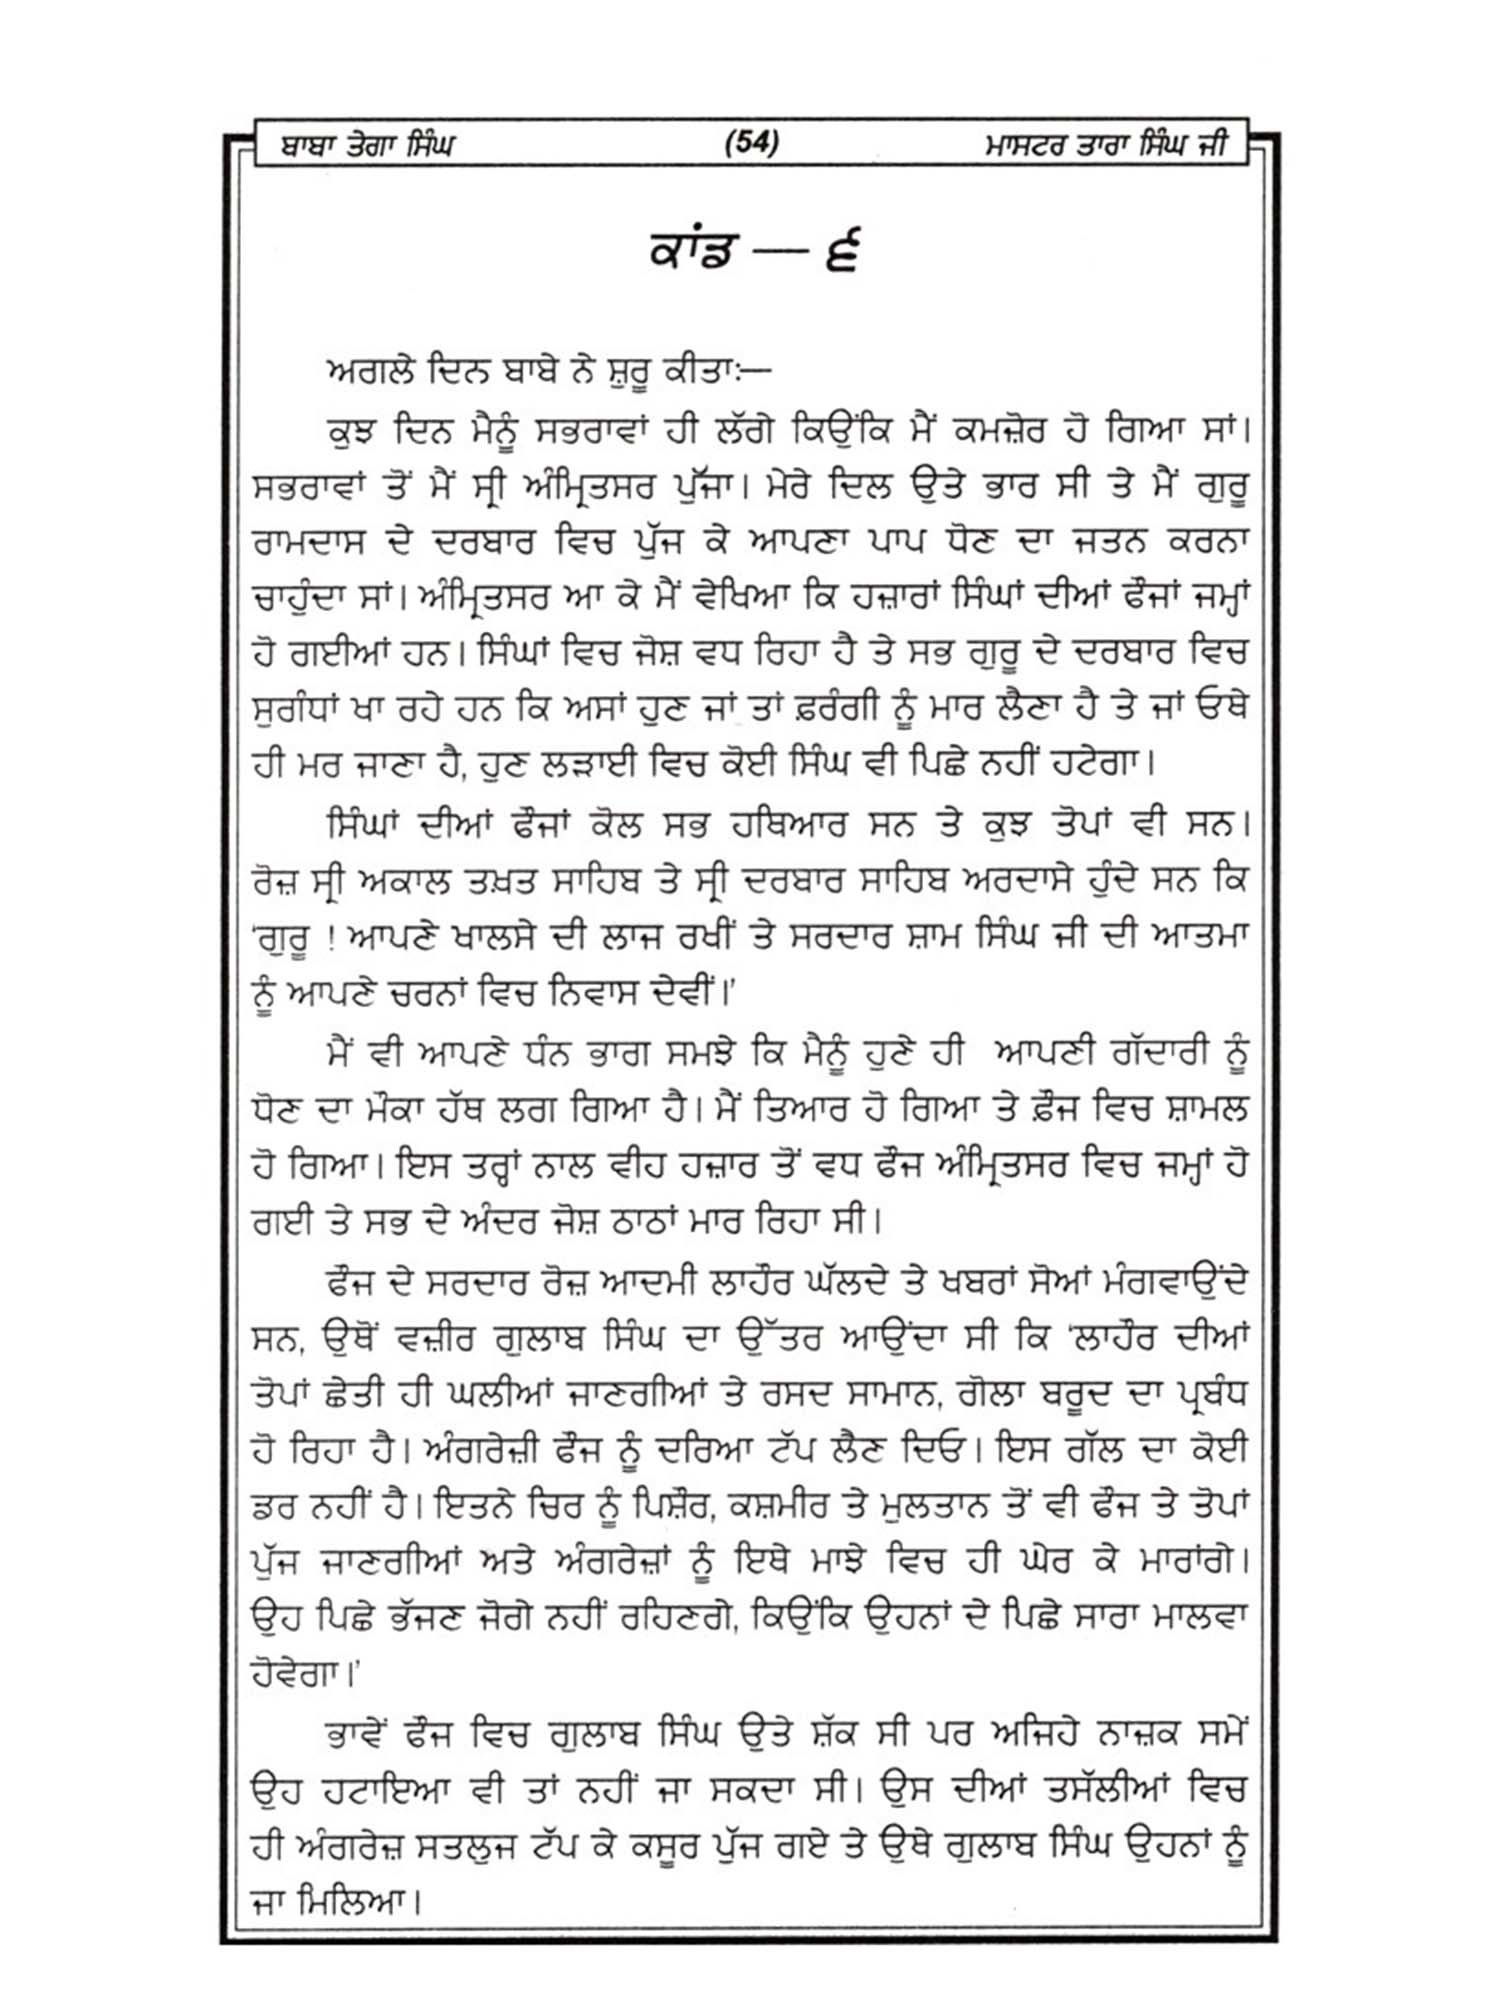 ਬਾਬਾ ਤੇਗਾ ਸਿੰਘ (54) ਮਾਸਟਰ ਤਾਰਾ ਸਿੰਘ ਜੀ
ਕਾਂਡ — ੬
ਅਗਲੇ ਦਿਨ ਬਾਬੇ ਨੇ ਸ਼ੁਰੂ ਕੀਤਾ:—
ਕੁਝ ਦਿਨ ਮੈਨੂੰ ਸਭਰਾਵਾਂ ਹੀ ਲੱਗੇ ਕਿਉਂਕਿ ਮੈਂ ਕਮਜ਼ੋਰ ਹੋ ਗਿਆ ਸਾਂ।
ਸਭਰਾਵਾਂ ਤੋਂ ਮੈਂ ਸ੍ਰੀ ਅੰਮ੍ਰਿਤਸਰ ਪੁੱਜਾ। ਮੇਰੇ ਦਿਲ ਉਤੇ ਭਾਰ ਸੀ ਤੇ ਮੈਂ ਗੁਰੂ
ਰਾਮਦਾਸ ਦੇ ਦਰਬਾਰ ਵਿਚ ਪੁੱਜ ਕੇ ਆਪਣਾ ਪਾਪ ਧੋਣ ਦਾ ਜਤਨ ਕਰਨਾ
ਚਾਹੁੰਦਾ ਸਾਂ। ਅੰਮ੍ਰਿਤਸਰ ਆ ਕੇ ਮੈਂ ਵੇਖਿਆ ਕਿ ਹਜ਼ਾਰਾਂ ਸਿੰਘਾਂ ਦੀਆਂ ਫੌਜਾਂ ਜਮ੍ਹਾਂ
ਹੋ ਗਈਆਂ ਹਨ। ਸਿੰਘਾਂ ਵਿਚ ਜੋਸ਼ ਵਧ ਰਿਹਾ ਹੈ ਤੇ ਸਭ ਗੁਰੂ ਦੇ ਦਰਬਾਰ ਵਿਚ
ਸੁਗੰਧਾਂ ਖਾ ਰਹੇ ਹਨ ਕਿ ਅਸਾਂ ਹੁਣ ਜਾਂ ਤਾਂ ਫ਼ਰੰਗੀ ਨੂੰ ਮਾਰ ਲੈਣਾ ਹੈ ਤੇ ਜਾਂ ਓਥੇ
ਹੀ ਮਰ ਜਾਣਾ ਹੈ, ਹੁਣ ਲੜਾਈ ਵਿਚ ਕੋਈ ਸਿੰਘ ਵੀ ਪਿਛੇ ਨਹੀਂ ਹਟੇਗਾ।
ਸਿੰਘਾਂ ਦੀਆਂ ਫੌਜਾਂ ਕੋਲ ਸਭ ਹਥਿਆਰ ਸਨ ਤੇ ਕੁਝ ਤੋਪਾਂ ਵੀ ਸਨ।
ਰੋਜ਼ ਸ੍ਰੀ ਅਕਾਲ ਤਖ਼ਤ ਸਾਹਿਬ ਤੇ ਸ੍ਰੀ ਦਰਬਾਰ ਸਾਹਿਬ ਅਰਦਾਸੇ ਹੁੰਦੇ ਸਨ ਕਿ
'ਗੁਰੂ ! ਆਪਣੇ ਖਾਲਸੇ ਦੀ ਲਾਜ ਰਖੀਂ ਤੇ ਸਰਦਾਰ ਸ਼ਾਮ ਸਿੰਘ ਜੀ ਦੀ ਆਤਮਾ
ਨੂੰ ਆਪਣੇ ਚਰਨਾਂ ਵਿਚ ਨਿਵਾਸ ਦੇਵੀਂ।'
ਮੈਂ ਵੀ ਆਪਣੇ ਧੰਨ ਭਾਗ ਸਮਝੇ ਕਿ ਮੈਨੂੰ ਹੁਣੇ ਹੀ ਆਪਣੀ ਗੱਦਾਰੀ ਨੂੰ
ਧੋਣ ਦਾ ਮੌਕਾ ਹੱਥ ਲਗ ਗਿਆ ਹੈ। ਮੈਂ ਤਿਆਰ ਹੋ ਗਿਆ ਤੇ ਫ਼ੌਜ ਵਿਚ ਸ਼ਾਮਲ
ਹੋ ਗਿਆ। ਇਸ ਤਰ੍ਹਾਂ ਨਾਲ ਵੀਹ ਹਜ਼ਾਰ ਤੋਂ ਵਧ ਫੌਜ ਅੰਮ੍ਰਿਤਸਰ ਵਿਚ ਜਮ੍ਹਾਂ ਹੋ
ਗਈ ਤੇ ਸਭ ਦੇ ਅੰਦਰ ਜੋਸ਼ ਠਾਠਾਂ ਮਾਰ ਰਿਹਾ ਸੀ।
ਫੌਜ ਦੇ ਸਰਦਾਰ ਰੋਜ਼ ਆਦਮੀ ਲਾਹੌਰ ਘੱਲਦੇ ਤੇ ਖਬਰਾਂ ਸੋਆਂ ਮੰਗਵਾਉਂਦੇ
ਸਨ, ਉਥੋਂ ਵਜ਼ੀਰ ਗੁਲਾਬ ਸਿੰਘ ਦਾ ਉੱਤਰ ਆਉਂਦਾ ਸੀ ਕਿ 'ਲਾਹੌਰ ਦੀਆਂ
ਤੋਪਾਂ ਛੇਤੀ ਹੀ ਘਲੀਆਂ ਜਾਣਗੀਆਂ ਤੇ ਰਸਦ ਸਾਮਾਨ, ਗੋਲਾ ਬਰੂਦ ਦਾ ਪ੍ਰਬੰਧ
ਹੋ ਰਿਹਾ ਹੈ। ਅੰਗਰੇਜ਼ੀ ਫੌਜ ਨੂੰ ਦਰਿਆ ਟੱਪ ਲੈਣ ਦਿਓ। ਇਸ ਗੱਲ ਦਾ ਕੋਈ
ਡਰ ਨਹੀਂ ਹੈ। ਇਤਨੇ ਚਿਰ ਨੂੰ ਪਿਸ਼ੌਰ, ਕਸ਼ਮੀਰ ਤੇ ਮੁਲਤਾਨ ਤੋਂ ਵੀ ਫੌਜ ਤੇ ਤੋਪਾਂ
ਪੁੱਜ ਜਾਣਗੀਆਂ ਅਤੇ ਅੰਗਰੇਜ਼ਾਂ ਨੂੰ ਇਥੇ ਮਾਝੇ ਵਿਚ ਹੀ ਘੇਰ ਕੇ ਮਾਰਾਂਗੇ।
ਉਹ ਪਿਛੇ ਭੱਜਣ ਜੋਗੇ ਨਹੀਂ ਰਹਿਣਗੇ, ਕਿਉਂਕਿ ਉਹਨਾਂ ਦੇ ਪਿਛੇ ਸਾਰਾ ਮਾਲਵਾ
ਹੋਵੇਗਾ।'
ਭਾਵੇਂ ਫੌਜ ਵਿਚ ਗੁਲਾਬ ਸਿੰਘ ਉਤੇ ਸ਼ੱਕ ਸੀ ਪਰ ਅਜਿਹੇ ਨਾਜ਼ਕ ਸਮੇਂ
ਉਹ ਹਟਾਇਆ ਵੀ ਤਾਂ ਨਹੀਂ ਜਾ ਸਕਦਾ ਸੀ। ਉਸ ਦੀਆਂ ਤਸੱਲੀਆਂ ਵਿਚ
ਹੀ ਅੰਗਰੇਜ਼ ਸਤਲੁਜ ਟੱਪ ਕੇ ਕਸੂਰ ਪੁੱਜ ਗਏ ਤੇ ਉਥੇ ਗੁਲਾਬ ਸਿੰਘ ਉਹਨਾਂ ਨੂੰ
ਜਾ ਮਿਲਿਆ।